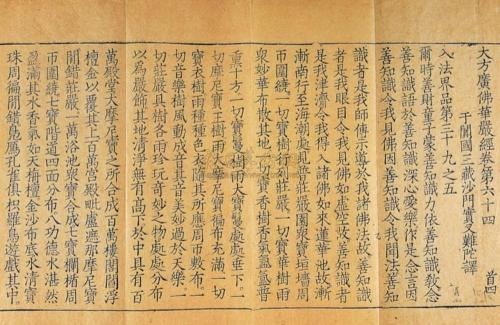 大方廣佛華嚴經卷第六十四
首四
于闐國三藏沙門實叉難陀譯
入法界品第三十九之五
爾時善財童子蒙善知識力依善知識教念
善知識語於善知識深心愛樂作是念言因
善知識令我見佛因善知識令我聞法善知
識者是我師傅示導於我諸佛法故善知識
者是我眼目令我見佛如虛空故善知識者
是我津濟令我得入諸佛如來蓮華池故漸
漸南行至海潮處見普莊嚴園眾寶垣牆周
帀圍繞一切寶樹行列莊嚴一切寶華樹雨
眾妙華布散其地一切寶香樹香氣氛氳普
熏十方一切寶鬘樹雨大寶鬘處處垂下一
切摩尼寶王樹雨大摩尼寶徧布充滿一切
寶衣樹雨種種色衣隨其所應周帀敷布一
切音樂樹風動成音其音美妙過於天樂一
切莊嚴具樹各雨珍玩奇妙之物處處分布
以為嚴飾其地清淨無有高下於中具有百
萬殿堂大摩尼寶之所合成百萬樓閣閻浮
檀金以覆其上百萬宮殿毗盧遮那摩尼寶
間錯莊嚴一萬浴池眾寶合成七寶欄楯周
帀圍繞七寶階道四面分布八功德水湛然
盈滿其水香氣如天栴檀金沙布底水清寶
珠周徧間錯鳧鴈孔雀俱枳羅鳥遊戲其中